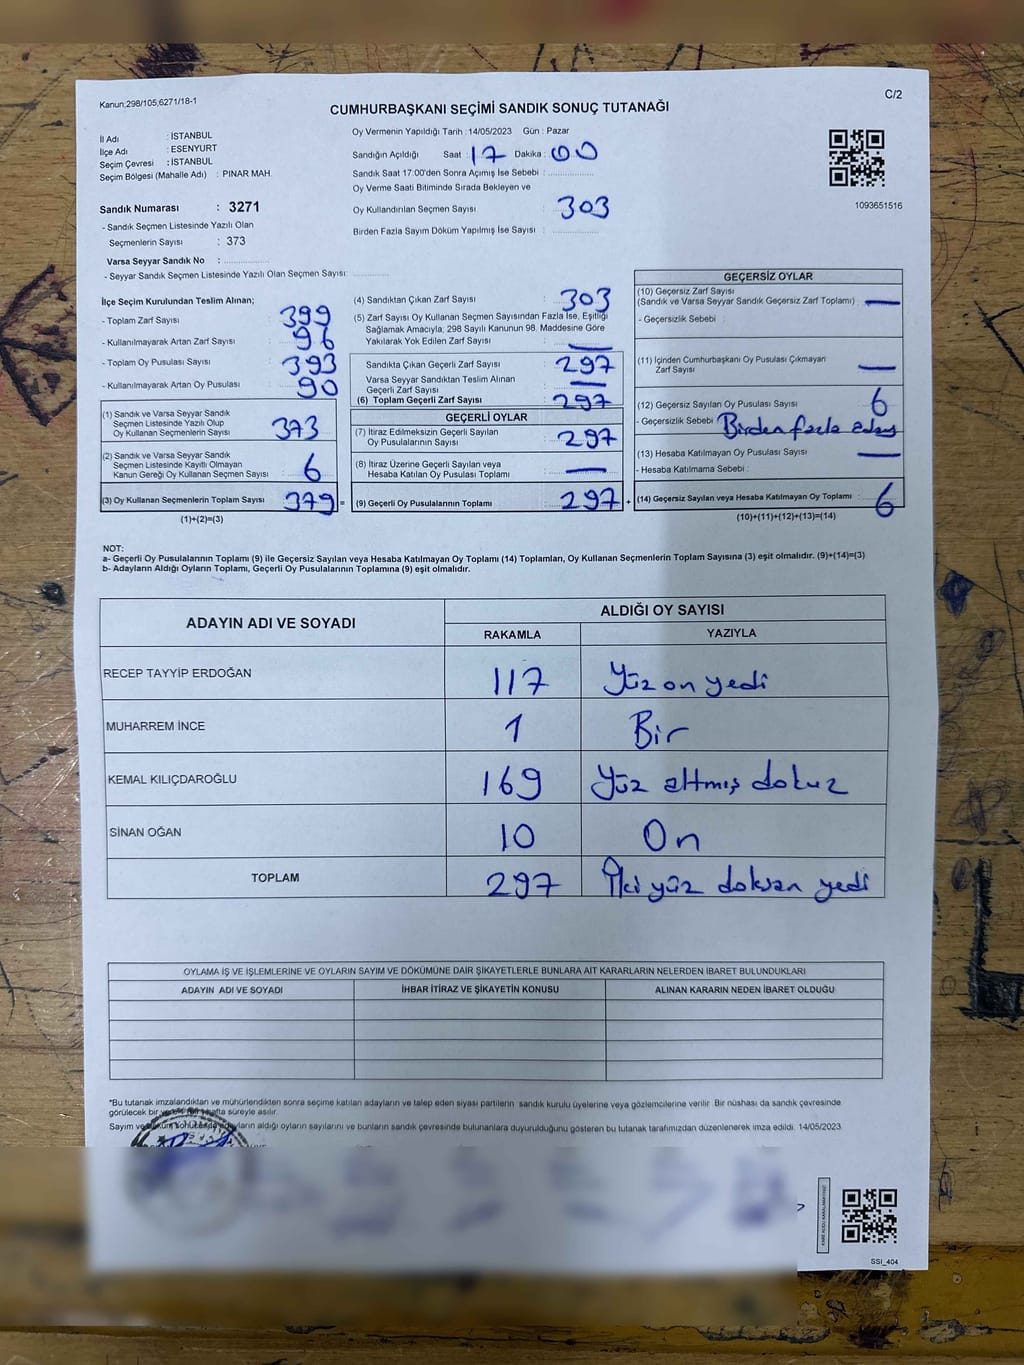 Kanun;298/105,6271/18-1
C/2
CUMHURBAŞKANI SEÇİMİ SANDIK SONUÇ TUTANAĞI
İl Adı : İSTANBUL
İlçe Adı : ESENYURT
Seçim Çevresi : İSTANBUL
Seçim Bölgesi (Mahalle Adı) : PINAR MAH.
Sandık Numarası : 3271
- Sandık Seçmen Listesinde Yazılı Olan
Seçmenlerin Sayısı : 373
Varsa Seyyar Sandık No : ..............
- Seyyar Sandık Seçmen Listesinde Yazılı Olan Seçmen Sayısı: ............
Oy Vermenin Yapıldığı Tarih : 14/05/2023 Gün : Pazar
Sandığın Açıldığı Saat : 17 Dakika : 00
Sandık Saat 17:00'den Sonra Açımış İse Sebebi : ..............
Oy Verme Saati Bitiminde Sırada Bekleyen ve
Oy Kullandırılan Seçmen Sayısı : 303
Birden Fazla Sayım Döküm Yapılmış İse Sayısı : ..............
1093651516
İlçe Seçim Kurulundan Teslim Alınan;
- Toplam Zarf Sayısı : 399
- Kullanılmayarak Artan Zarf Sayısı : 96
- Toplam Oy Pusulası Sayısı : 393
- Kullanılmayarak Artan Oy Pusulası : 90
(1) Sandık ve Varsa Seyyar Sandık
Seçmen Listesinde Yazılı Olup
Oy Kullanan Seçmenlerin Sayısı : 373
(2) Sandık ve Varsa Seyyar Sandık
Seçmen Listesinde Kayıtlı Olmayan
Kanun Gereği Oy Kullanan Seçmen Sayısı : 6
(3) Oy Kullanan Seçmenlerin Toplam Sayısı : 379 =
(1)+(2)=(3)
(4) Sandıktan Çıkan Zarf Sayısı : 303
(5) Zarf Sayısı Oy Kullanan Seçmen Sayısından Fazla İse, Eşitliği
Sağlamak Amacıyla; 298 Sayılı Kanunun 98. Maddesine Göre
Yakılarak Yok Edilen Zarf Sayısı : —
Sandıkta Çıkan Geçerli Zarf Sayısı : 297
Varsa Seyyar Sandıktan Teslim Alınan
Geçerli Zarf Sayısı : —
(6) Toplam Geçerli Zarf Sayısı : 297
GEÇERLİ OYLAR
(7) İtiraz Edilmeksizin Geçerli Sayılan
Oy Pusulalarının Sayısı : 297
(8) İtiraz Üzerine Geçerli Sayılan veya
Hesaba Katılan Oy Pusulası Toplamı : —
(9) Geçerli Oy Pusulalarının Toplamı : 297 +
GEÇERSİZ OYLAR
(10) Geçersiz Zarf Sayısı
(Sandık ve Varsa Seyyar Sandık Geçersiz Zarf Toplamı) : —
- Geçersizlik Sebebi :
(11) İçinden Cumhurbaşkanı Oy Pusulası Çıkmayan
Zarf Sayısı : —
(12) Geçersiz Sayılan Oy Pusulası Sayısı : 6
- Geçersizlik Sebebi : Birden fazla aday
(13) Hesaba Katılmayan Oy Pusulası Sayısı : —
- Hesaba Katılmama Sebebi :
(14) Geçersiz Sayılan veya Hesaba Katılmayan Oy Toplamı : 6
(10)+(11)+(12)+(13)=(14)
NOT:
a- Geçerli Oy Pusulalarının Toplamı (9) ile Geçersiz Sayılan veya Hesaba Katılmayan Oy Toplamı (14) Toplamları, Oy Kullanan Seçmenlerin Toplam Sayısına (3) eşit olmalıdır. (9)+(14)=(3)
b- Adayların Aldığı Oyların Toplamı, Geçerli Oy Pusulalarının Toplamına (9) eşit olmalıdır.
ADAYIN ADI VE SOYADI
ALDIĞI OY SAYISI
RAKAMLA YAZIYLA
RECEP TAYYİP ERDOĞAN 117 Yüz on yedi
MUHARREM İNCE 1 Bir
KEMAL KILIÇDAROĞLU 169 Yüz altmış dokuz
SİNAN OĞAN 10 On
TOPLAM 297 İki yüz doksan yedi
OYLAMA İŞ VE İŞLEMLERİNE VE OYLARIN SAYIM VE DÖKÜMÜNE DAİR ŞİKAYETLERLE BUNLARA AİT KARARLARIN NELERDEN İBARET BULUNDUKLARI
ADAYIN ADI VE SOYADI İHBAR İTİRAZ VE ŞİKAYETİN KONUSU ALINAN KARARIN NEDEN İBARET OLDUĞU
*Bu tutanak imzalandıktan ve mühürlendikten sonra seçime katılan adayların ve talep eden siyasi partilerin sandık kurulu üyelerine veya gözlemcilerine verilir. Bir nüshası da sandık çevresinde
görülecek bir hafta süreyle asılır.
Sayım ve aldığı oyların sayılarını ve bunların sandık çevresinde bulunanlara duyurulduğunu gösteren bu tutanak tarafımızdan düzenlenerek imza edildi. 14/05/2023
SSI_404